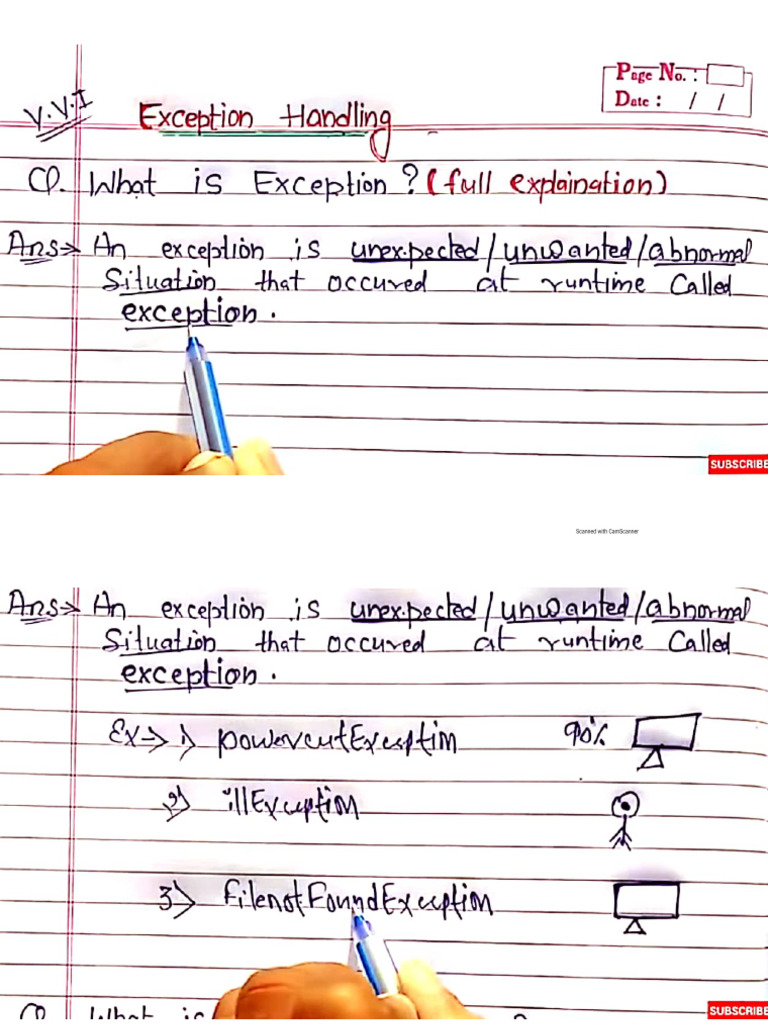 Page No. :
Date : / /
V.V.I Exception Handling
Q. What is Exception? (full explaination)
Ans→ An exception is unexpected/unwanted/abnormal
Situation that occured at runtime called
exception.
SUBSCRIBE
Scanned with CamScanner
Ans→ An exception is unexpected/unwanted/abnormal
Situation that occured at runtime called
exception.
Ex→ 1) powercutException 90%
2) illException
3) filenotFoundException
Q What is
SUBSCRIBE